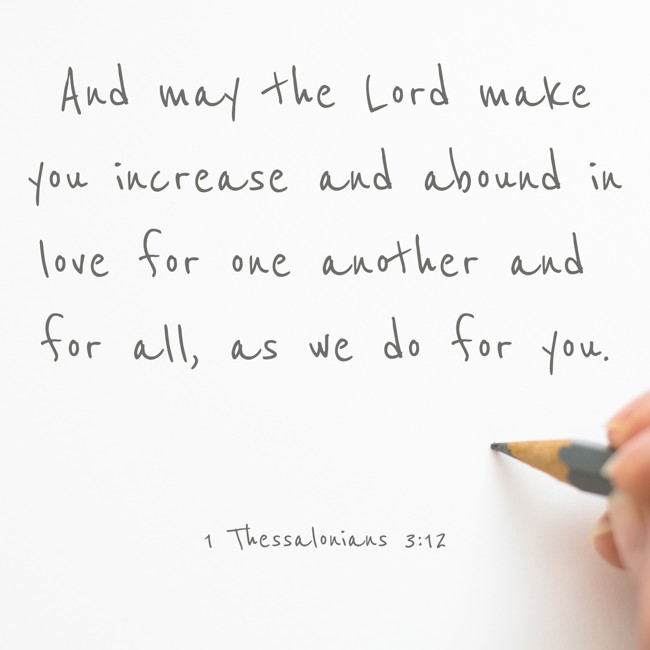 And may the Lord make
you increase and abound in
love for one another and
for all, as we do for you.
1 Thessalonians 3:12